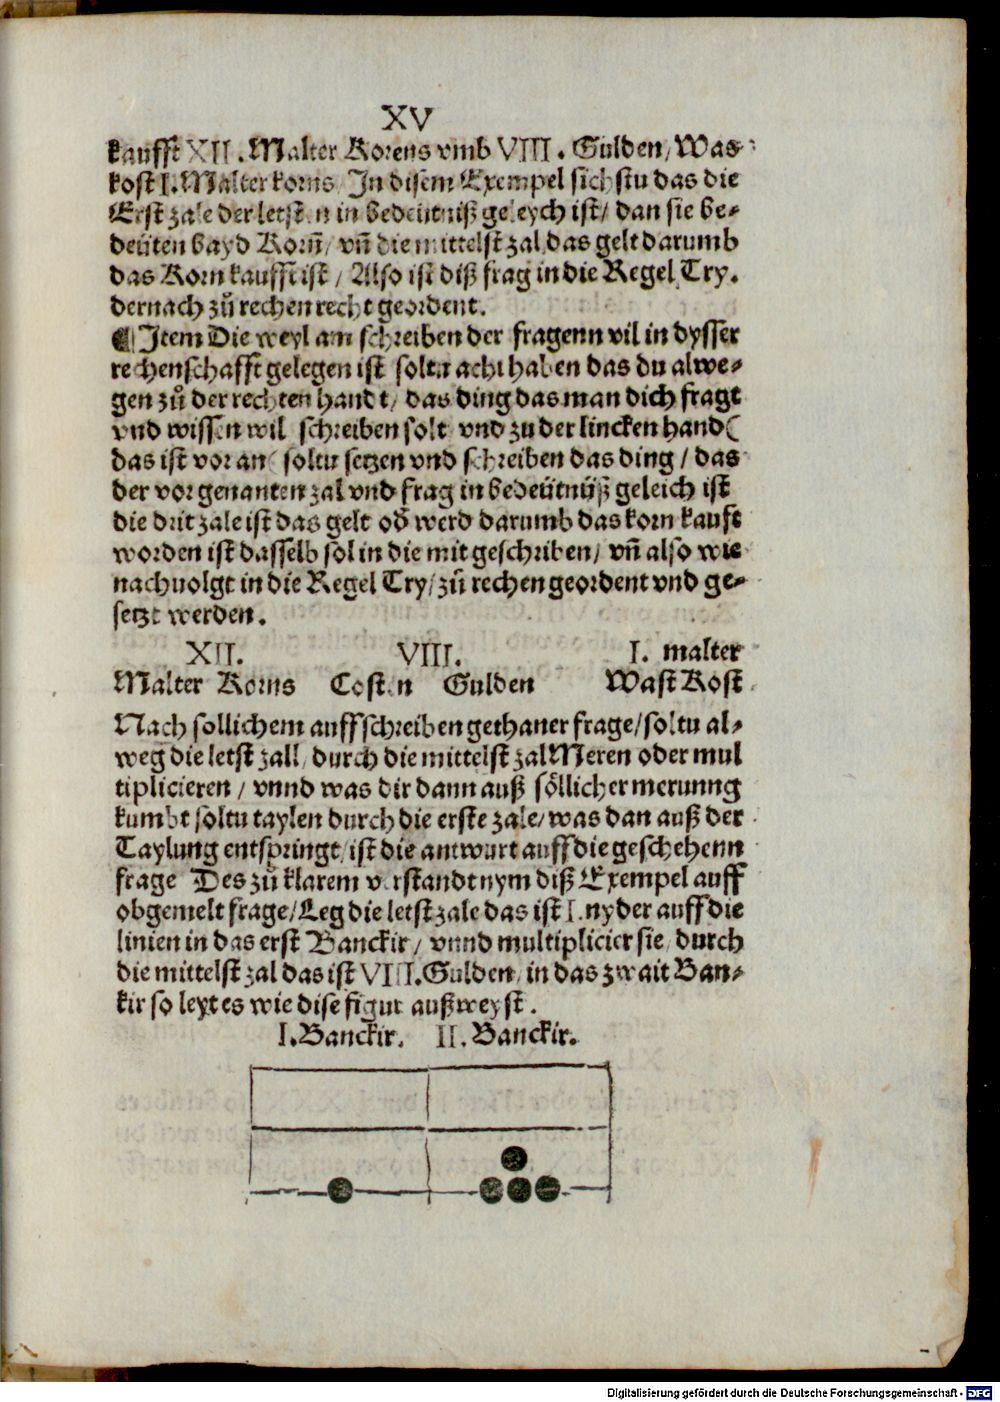 XV
kaufft XII. Malter Korens vmb VIII. Gulden/ Was
kost I. Malter korns/ In disem Exempel sichstu das die
Erst zale der letsten in bedeütniß geleych ist/ dan sie be-
deüten bayd Korn̄/ vn̄ die mittelst zal das gelt darumb
das Korn kaufft ist/ Also ist diß frag in die Regel Try.
dernach zů rechen recht geordent.
¶ Item Die weyl am schreiben der fragenn vil in dysser
rechenschafft gelegen ist soltu acht haben das du alwe-
gen zů der rechten handt/ das ding das man dich fragt
vnd wissen wil schreiben solt vnd zu der lincken hand(
das ist vor an( soltu setzen vnd schreiben das ding/ das
der vor genanten zal vnd frag in bedeütnüß geleich ist
die drit zale ist das gelt od̄ werd darumb das korn kauft
worden ist dasselb sol in die mit geschriben/ vn̄ also wie
nachuolgt in die Regel Try/ zů rechen geordent vnd ge-
setzt werden.
XII. VIII. I. malter
Malter Korns Costen Gulden Wast Kost
Nach sollichem auffschreiben gethaner frage/ soltu al-
weg die letst zall/ durch die mittelst zal Meren oder mul
tiplicieren/ vnnd was dir dann auß söllicher merunng
kumbt soltu taylen durch die erste zale/ was dan auß der
Taylung entspringt/ ist die antwurt auff die geschehenn
frage Des zů klarem verstandt nym diß Exempel auff
obgemelt frage/ Leg die letst zale das ist I. nyder auff die
linien in das erst Banckir/ vnnd multiplicier sie/ durch
die mittelst zal das ist VIII. Gulden/ in das zwait Ban-
kir so leyt es wie dise figur außweyst.
I. Banckir. II. Banckir.
Digitalisierung gefördert durch die Deutsche Forschungsgemeinschaft - DFG